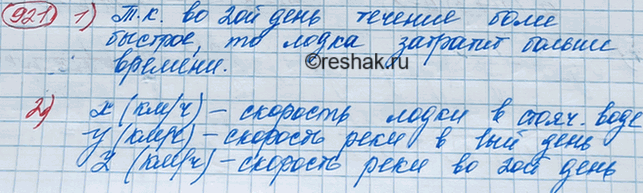 921 1) Т.к. во 2ой день течение боле
быстрое, то лодка затратит больше
времени.
©reshak.ru
2) x (км/ч) – скорость лодки в стояч. воде
y (км/ч) – скорость реки в 1ый день
z (км/ч) – скорость реки во 2ой день